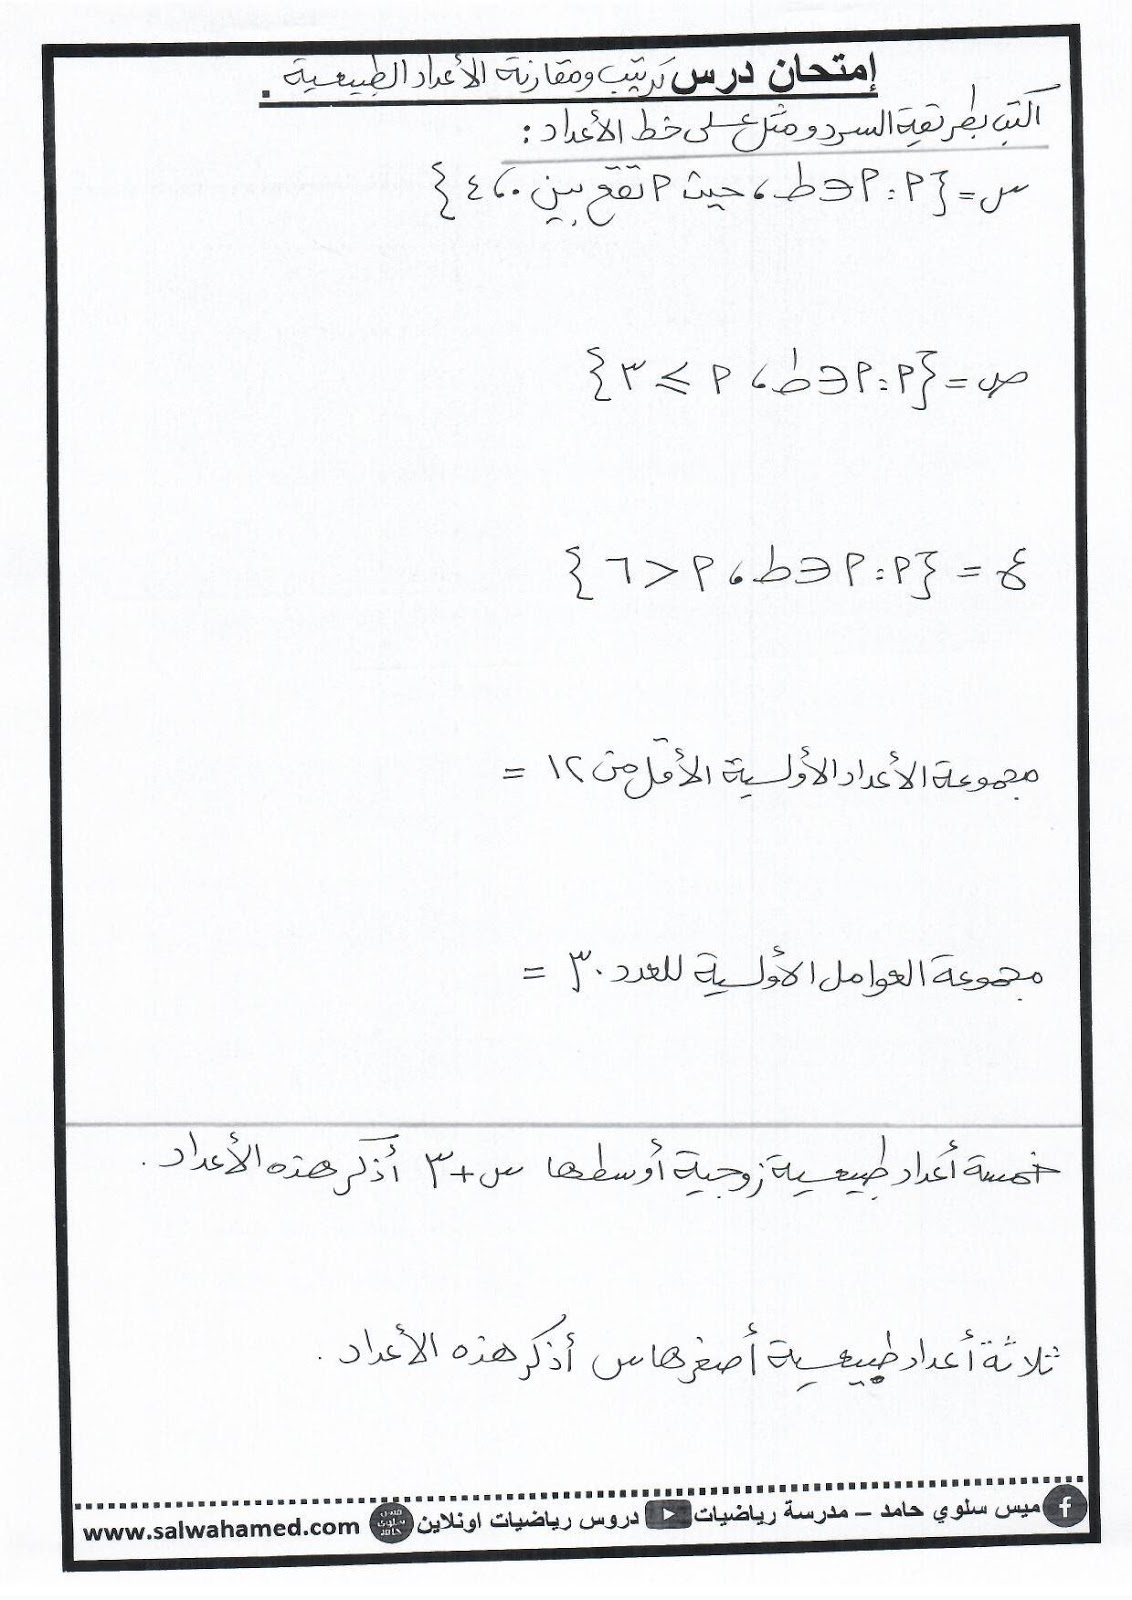 إمتحان درس ترتيب ومقارنة الأعداد الطبيعية .
اكتب بطريقة السرد ومثل على خط الأعداد :
س = {م : م ∈ ط ، حيث م تقع بين ٠ ، ٤}
ص = {م : م ∈ ط ، م ⩽ ٣}
ع = {م : م ∈ ط ، م < ٦}
مجموعة الأعداد الأولية الأقل من ١٢ =
مجموعة العوامل الأولية للعدد ٣٠ =
خمسة أعداد طبيعية زوجية أوسطها س + ٣ أذكر هذه الأعداد .
ثلاثة أعداد طبيعية أصغرها س أذكر هذه الأعداد .
ميس سلوي حامد – مدرسة رياضيات دروس رياضيات اونلاين ميس سلوي حامد www.salwahamed.com